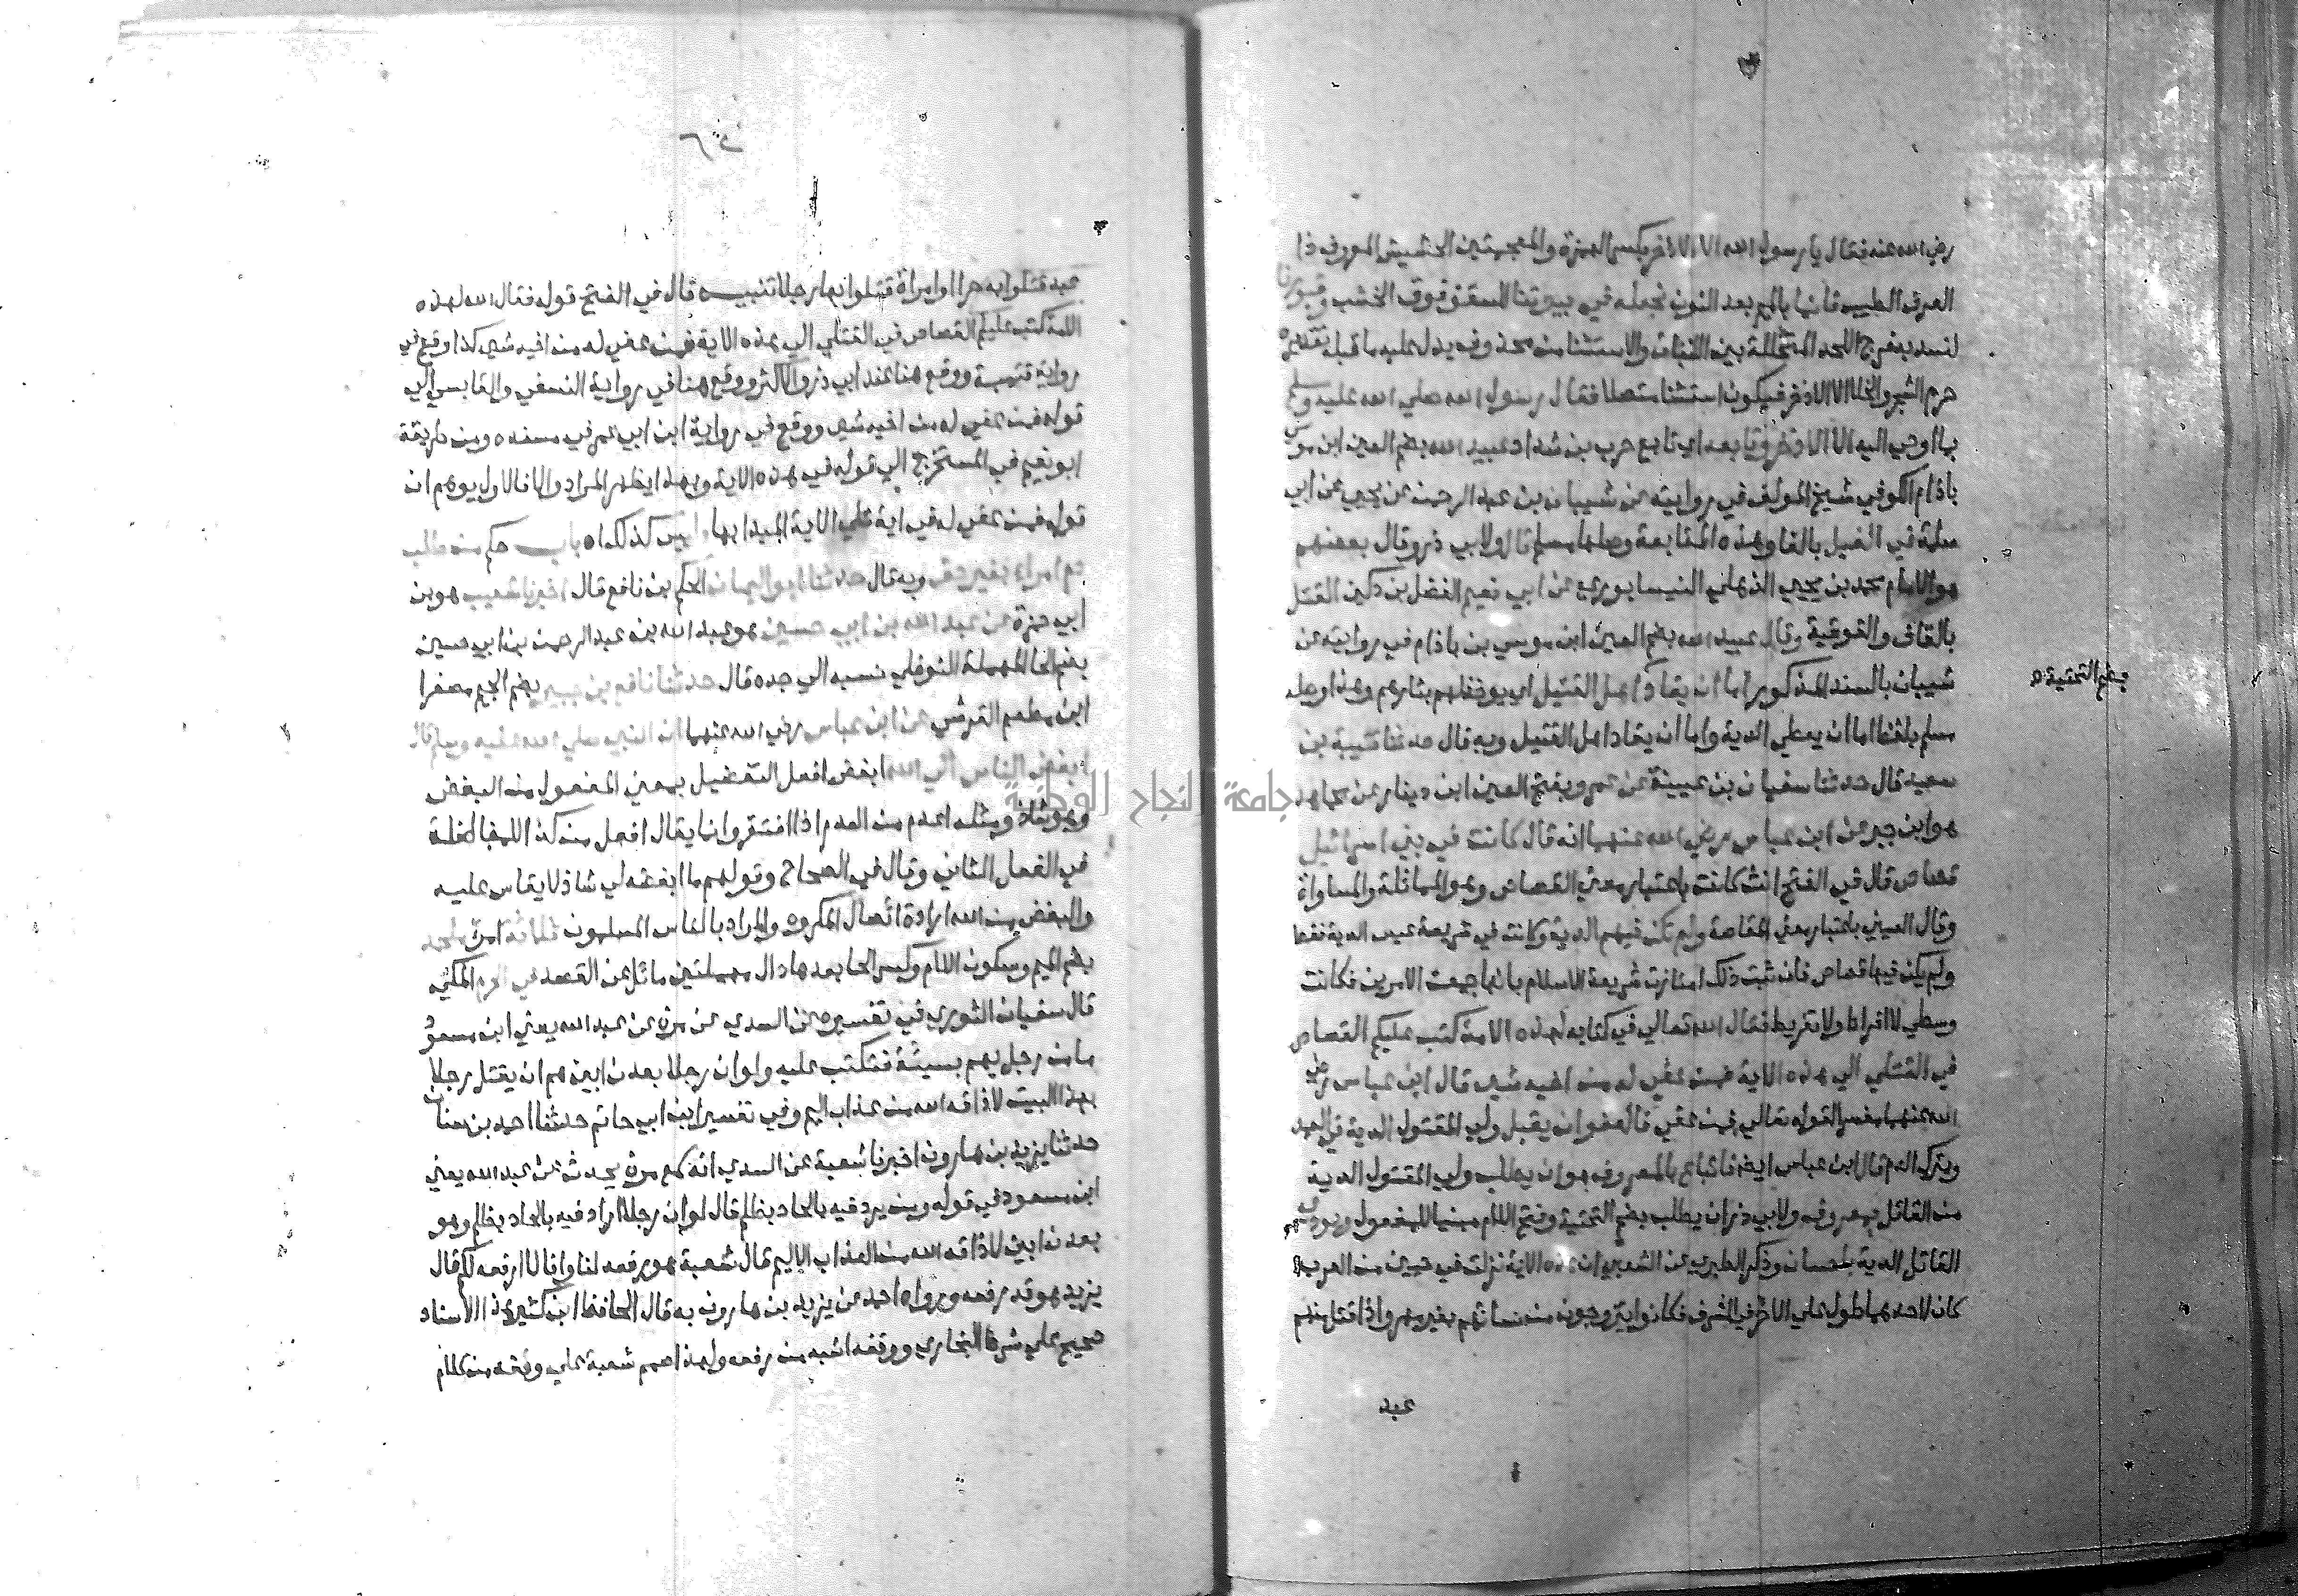 رضي الله عنه فقال يا رسول الله الا الاذخر بكسر الهمزة والمعجمتين الحشيش المعروف ذا
العرف الطيب فانما بالميم بعد النون نجعله في بيوتنا للسقف فوق الخشب وقبورنا
لنسد به فرج اللحد المتخللة بين اللبنات والاستثنا من محذوف يدل عليه ما قبله تقديره
حرم الشجر والخلا الا الاذخر فيكون استثنا متصلا فقال رسول الله صلي الله عليه وسلم
بما اوحي اليه الا الاذخر وتابعه اي تابع حرب بن شداد عبيد الله بضم العين ابن موسي
باذام الكوفي شيخ المولف في روايته عن شيبان بن عبد الرحمن عن يحيي عن ابي
سلمة في الفيل بالفا وهذه المتابعة وصلها مسلم قال ولابي ذر وقال بعضهم
هو الامام محمد بن يحيي الذهلي النيسابوري عن ابي نعيم الفضل بن دكين القتل
بالقاف والفوقية وقال عبيد الله بضم العين ابن موسي بن باذام في روايته عن
شيبان بالسند المذكور اما ان يقاد اهل القتيل اي يوخذ لهم بثارهم وهذا وصله
بضم التحتية ه
مسلم بلفظ اما ان يعطي الدية واما ان يقاد اهل القتيل وبه قال حدثنا قتيبة بن
سعيد قال حدثنا سفيان بن عيينة عن عمرو بفتح العين ابن دينار عن مجاهد
هو ابن جبر عن ابن عباس رضي الله عنهما انه قال كانت في بني اسرائيل
قصاص قال في الفتح انث كانت باعتبار معني القصاص وهو المماثلة والمساواة
وقال العيني باعتبار معني المقاصة ولم تكن فيهم الدية وكانت في شريعة عيسي الدية فقط
ولم يكن فيها قصاص فان ثبت ذلك امتازت شريعة الاسلام بانها جمعت الامرين فكانت
وسطي لا افراط ولا تفريط فقال الله تعالي في كتابه لهذه الامة كتب عليكم القصاص
في القتلي الي هذه الاية فمن عفي له من اخيه شي قال ابن عباس رضي
الله عنهما مفسرا لقوله تعالي فمن عفي فالعفو ان يقبل ولي المقتول الدية في العمد
ويترك الدم قال ابن عباس ايضا فاتباع بالمعروف هو ان يطلب ولي المقتول الدية
من القاتل بمعروف ولابي ذر ان يطلب بضم التحتية وفتح اللام مبنيا للمفعول ويودي
القاتل الدية باحسان وذكر الطبري عن الشعبي ان هذه الاية نزلت في حيين من العرب
كان لاحدهما طول علي الاخر في الشرف فكانوا يتزوجون من نسائهم بغير مهر واذا قتل منهم
عبد
٦٤
عبد قتلوا به حرا او امراة قتلوا بها رجلا تنبيه قال في الفتح قوله فقال الله لهذه
الامة كتب عليكم القصاص في القتلي الي هذه الاية فمن عفي له من اخيه شي كذا وقع في
رواية قتيبة ووقع هنا عند ابي ذر والاكثر ووقع هنا في رواية النسفي والقابسي الي
قوله فمن عفي له من اخيه شي ووقع في رواية ابن ابي عمر في مسنده ومن طريقه
ابو نعيم في المستخرج الي قوله في هذه الاية وبهذا يظهر المراد والا فالاول يوهم ان
قوله فمن عفي له في اية تلي الاية المبدا بها وليس كذلك اه باب حكم من طلب
دم امرء بغير حق وبه قال حدثنا ابو اليمان الحكم بن نافع قال اخبرنا شعيب هو بن
ابي حمزة عن عبد الله بن ابي حسين هو عبد الله بن عبد الرحمن بن ابي حسين
بضم الحا المهملة النوفلي نسبه الي جده قال حدثنا نافع بن جبير بضم الجيم مصغرا
ابن مطعم القرشي عن ابن عباس رضي الله عنهما ان النبي صلي الله عليه وسلم قال
ابغض الناس الي الله ابغض افعل التفضيل بمعني المفعول من البغض
وهو شاذ ومثله اعدم من العدم اذا افتقر وانما يقال افعل من كذا للمفاضلة
في الفعل الثاني وقال في الصحاح وقولهم ما ابغضه لي شاذ لا يقاس عليه
والبغض من الله ارادة ايصال المكروه والمراد بالناس المسلمون ثلاثة امرؤ ملحد
بضم الميم وسكون اللام وكسر الحا بعدها دال مهملتين مائل عن القصد في الحرم المكي
قال سفيان الثوري في تفسيره عن السدي عن مرة عن عبد الله يعني ابن مسعود
ما من رجل يهم بسيئة فتكتب عليه ولو ان رجلا بعدن ابين هم ان يقتل رجلا
بهذا البيت لاذاقه الله من عذاب اليم وفي تفسير ابن ابي حاتم حدثنا احمد بن سنان
حدثنا يزيد بن هارون اخبرنا شعبة عن السدي انه سمع مرة يحدث عن عبد الله يعني
ابن مسعود في قوله ومن يرد فيه بالحاد بظلم قال لو ان رجلا اراد فيه بالحاد بظلم وهو
بعدن ابين لاذاقه الله من العذاب الاليم قال شعبة هو يرفعه لنا وانا لا ارفعه لكم قال
يزيد هو قد رفعه ورواه احمد عن يزيد بن هارون به قال الحافظ ابن كثير هذا الاسناد
صحيح علي شرط البخاري ووقفه اشبه من رفعه ولهذا صمم شعبة علي وقفه من كلام
جامعة النجاح الوطنية